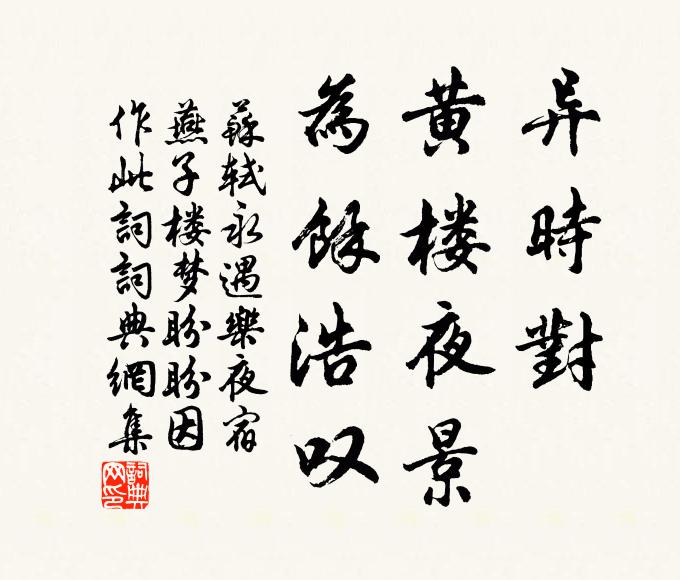 异時對
黄楼夜景
為餘浩叹
蘇軾永遇樂夜宿
燕子楼梦盼盼因
作此詞詞典網集
詞典
网印